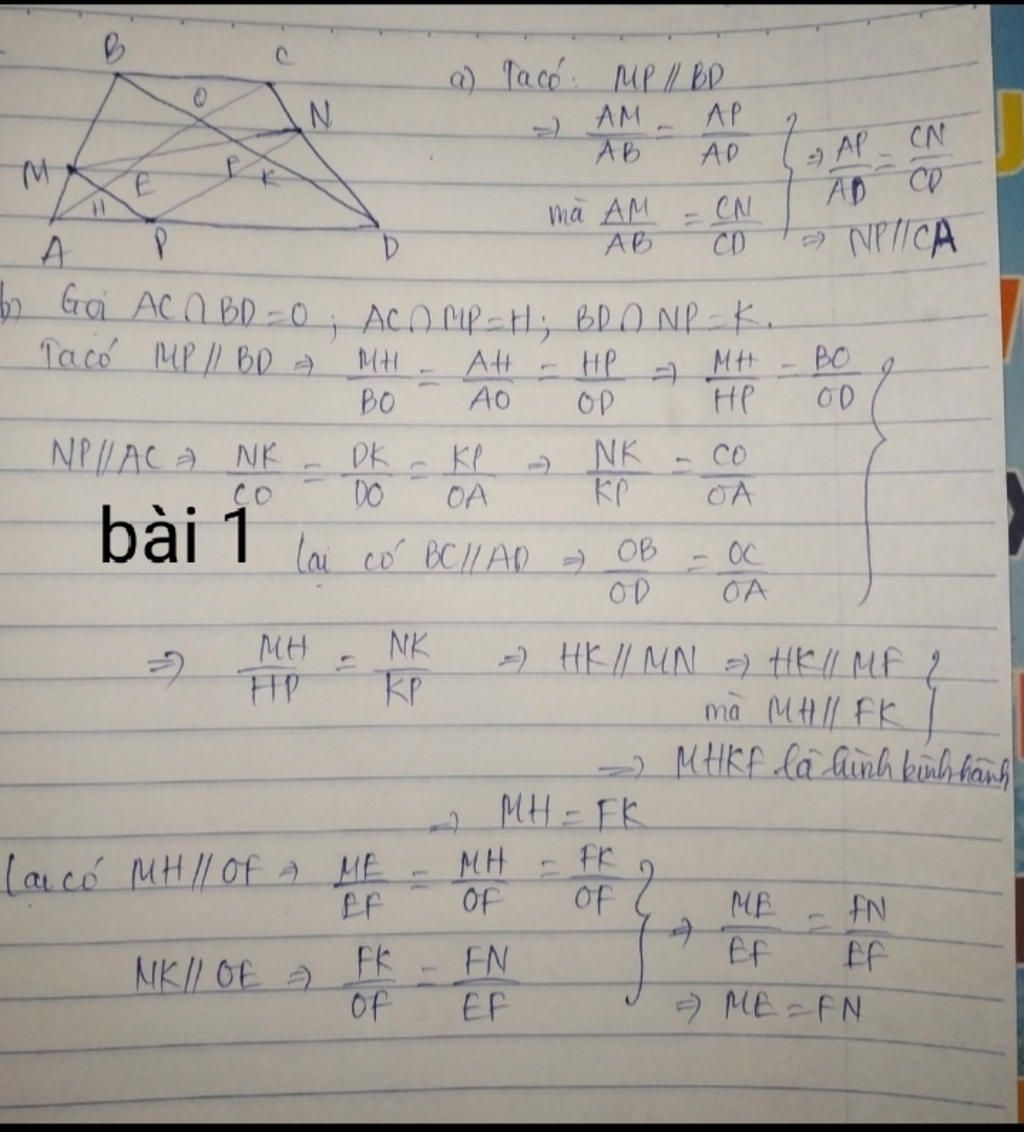 B C
O
N
M E F K
H
A P D
a) Ta có: MP // BD
=> AM/AB = AP/AD
mà AM/AB = CN/CD } => AP/AD = CN/CD
=> NP//CA
b) Gọi AC∩BD=O; AC∩MP=H; BD∩NP=K.
Ta có MP//BD => MH/BO = AH/AO = HP/OD => MH/HP = BO/OD
NP//AC => NK/CO = DK/DO = KP/OA => NK/KP = CO/OA
bài 1
lại có BC//AD => OB/OD = OC/OA }
=> MH/HP = NK/KP => HK//MN => HK//MF
mà MH//FK }
=> MHKF là hình bình hành
=> MH = FK
Lại có MH//OF => ME/EF = MH/OF = FK/OF
NK//OE => FK/OF = FN/EF } => ME/EF = FN/EF
=> ME = FN